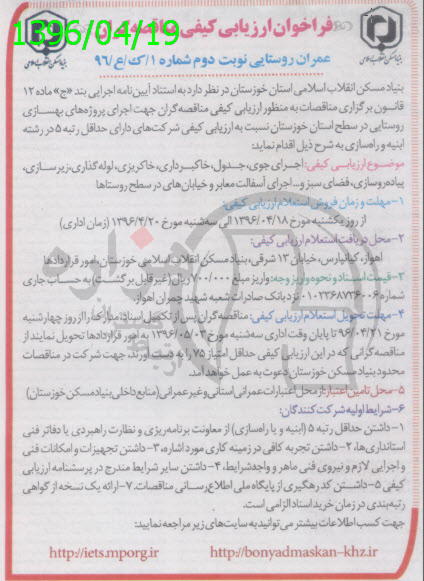 1396/04/19
فراخوان ارزیابی کیفی مناقصه گران
عمران روستایی نوبت دوم شماره ۱/ک/ع/۹۶
بنیاد مسکن انقلاب اسلامی استان خوزستان در نظر دارد به استناد آیین‌نامه اجرایی بند «ج» ماده ۱۲
قانون برگزاری مناقصات به منظور ارزیابی کیفی مناقصه‌گران جهت اجرای پروژه‌های بهسازی
روستایی در سطح استان خوزستان نسبت به ارزیابی کیفی شرکت‌های دارای حداقل رتبه ۵ در رشته
ابنیه و راه‌سازی به شرح ذیل اقدام نماید:
موضوع ارزیابی کیفی: اجرای جوی، جدول، خاکبرداری، خاکریزی، لوله‌گذاری، زیرسازی،
پیاده‌روسازی، فضای سبز و... اجرای آسفالت معابر و خیابان‌های در سطح روستاها
۱-مهلت و زمان فروش استعلام ارزیابی کیفی:
از روز یکشنبه مورخ ۱۳۹۶/۰۴/۱۸ الی سه‌شنبه مورخ ۱۳۹۶/۴/۲۰ (زمان اداری)
۲-محل دریافت استعلام ارزیابی کیفی:
اهواز، کیانپارس، خیابان ۱۳ شرقی، بنیاد مسکن انقلاب اسلامی خوزستان، امور قراردادها
۳-قیمت اسناد و نحوه واریز وجه: واریز مبلغ ۷۰۰/۰۰۰ ریال (غیر قابل برگشت) به حساب جاری
شماره ۰۱۰۲۳۶۸۷۳۶۰۰۶ نزد بانک صادرات شعبه شهید چمران اهواز.
۴-مهلت تحویل استعلام ارزیابی کیفی: مناقصه‌گران پس از تکمیل اسناد، مجاز از روز چهارشنبه
مورخ ۹۶/۰۴/۲۱ تا پایان وقت اداری سه‌شنبه مورخ ۱۳۹۶/۰۵/۰۳ به امور قراردادها تحویل نمایند از
مناقصه‌گرانی که در این ارزیابی کیفی حداقل امتیاز ۷۵ را به دست آورند، جهت شرکت در مناقصات
محدود بنیاد مسکن خوزستان دعوت به عمل خواهد آمد.
۵-محل تامین اعتبار: از محل اعتبارات عمرانی استانی و غیر عمرانی (منابع داخلی بنیاد مسکن خوزستان)
۶-شرایط اولیه شرکت کنندگان:
۱-داشتن حداقل رتبه ۵ (ابنیه و یا راه‌سازی) از معاونت برنامه‌ریزی و نظارت راهبردی یا دفاتر فنی
استانداری‌ها، ۲-داشتن تجربه کافی در زمینه کاری مورد اشاره، ۳-داشتن تجهیزات و امکانات فنی
و اجرایی لازم و نیروی فنی ماهر و واجد شرایط، ۴-داشتن سایر شرایط مندرج در پرسشنامه ارزیابی
کیفی ۵-داشتن کد رهگیری از پایگاه ملی اطلاع‌رسانی مناقصات. ۷-ارائه یک نسخه از گواهی
رتبه‌بندی در زمان خرید اسناد الزامی است.
جهت کسب اطلاعات بیشتر می‌توانید به سایت‌های زیر مراجعه نمایید:
http://iets.mporg.ir http://bonyadmaskan-khz.ir